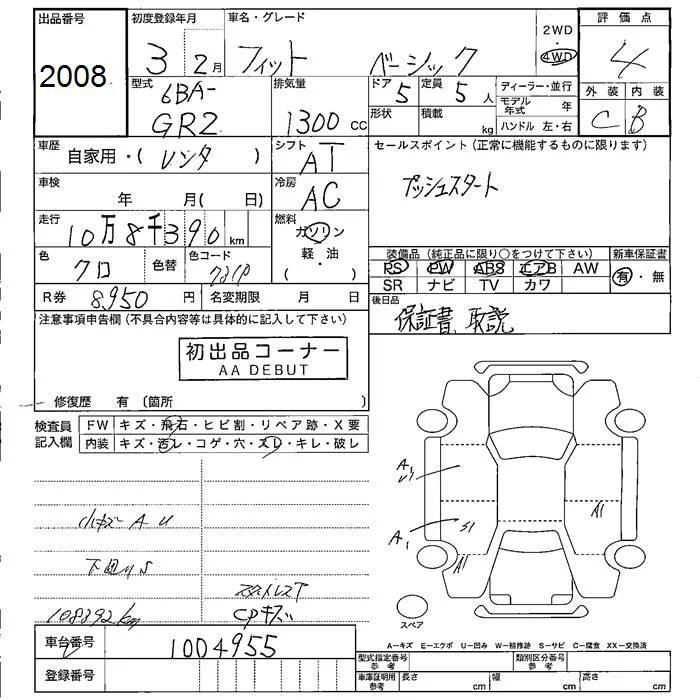 出品番号 初度登録年月 車名・グレード 2WD・4WD 評価点
2008 3 2月 フィット ベーシック 4
型式 排気量 ドア 定員 ディーラー・並行 外装 内装
6BA- 5 5人 モデル年式 年 C B
GR2 1300cc 形状 積載 kg ハンドル 左・右
車歴 シフト セールスポイント (正常に機能するものに限ります)
自家用・( レンタ ) AT
車検 冷房 プッシュスタート
年 月( 日) AC
走行 燃料
10万8千390km ガソリン
色 色コード 軽・油 装備品 (純正品に限り○をつけて下さい) 新車保証書
クロ 色替 ( ) PS PW ABS エアB AW 有・無
SR ナビ TV カワ
R券 8,950 円 名変期限 月 日 後日品
注意事項申告欄 (不具合内容等は具体的に記入して下さい) 保証書 取説
初出品コーナー
AA DEBUT
修復歴 有 (箇所 )
検査員 FW キズ・飛石・ヒビ割・リペア跡・X要
記入欄 内装 キズ・汚レ・コゲ・穴・スレ・キレ・破レ
A1
小キズ A U
A1 S1 A1
下回り S A1
スタイレスT
108392km CPキズ
スペア
車台番号 1004955
A－キズ E－エクボ U－凹み W－補修跡 S－サビ C－腐食 XX－交換済
型式指定番号 参考 類別区分番号 参考
登録番号 車庫証明用 参考 長さ cm 幅 cm 高さ cm